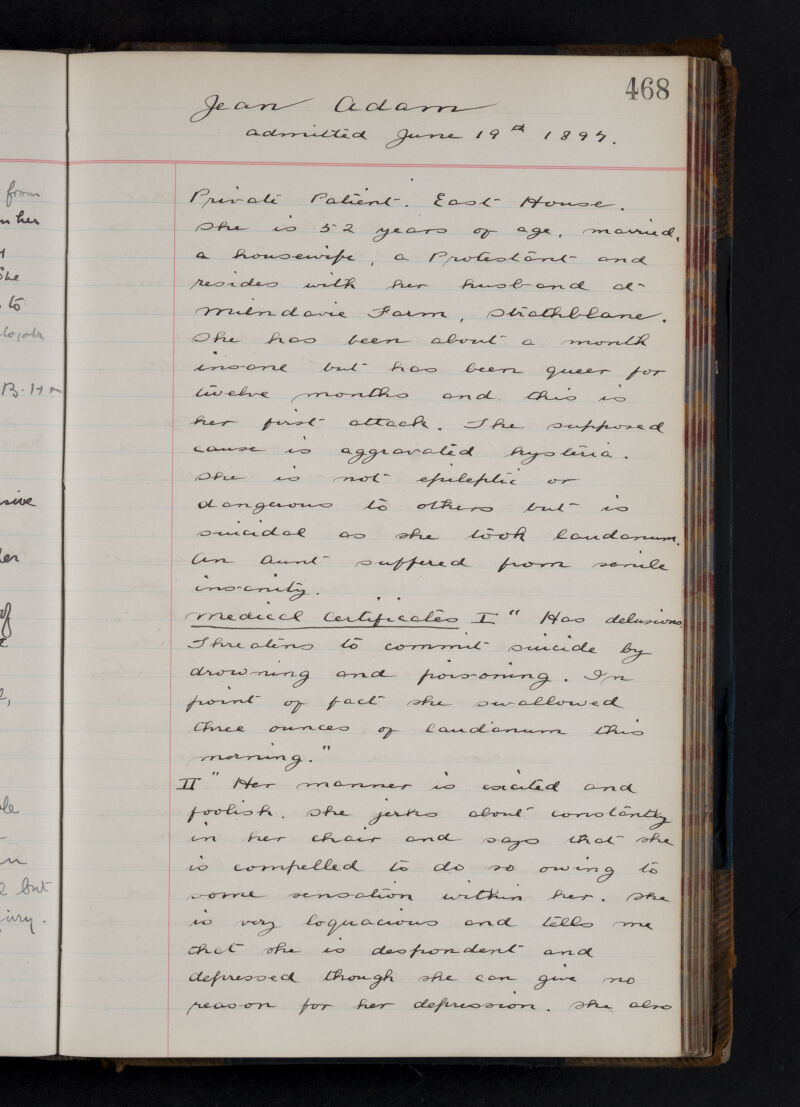 468
Jean Adam
admitted June 19th 1897.
from
her
She
to
B.
Private Patient. East House.
She is 52 years of age, married,
a housewife, a Protestant and
resides with her husband at
Milndavie Farm, Strathblane.
She has been about a month
insane but has been queer for
twelve months and this is
her first attack. The supposed
cause is aggravated hysteria.
She is not epileptic or
dangerous to others but is
suicidal as she took laudanum.
An Aunt suffered from senile
insanity.
Medical Certificates I " Has delusions.
Threatens to commit suicide by
drowning and poisoning. In
point of fact she swallowed
three ounces of laudanum this
morning."
II " Her manner is excited and
foolish. She jerks about constantly
in her chair and says that she
is compelled to do so owing to
some sensation within her. She
is very loquacious and tells me
that she is despondent and
depressed though she can give no
reason for her depression. She also
of
but